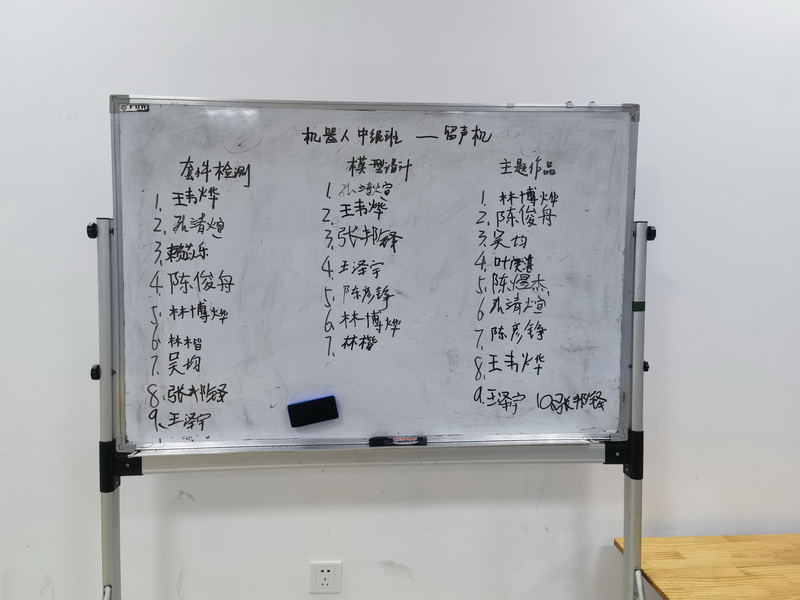 机器人中级班 — 留声机
套件检测
1. 王韦烨
2. 孔清煊
3. 赖苡乐
4. 陈俊舟
5. 林博烨
6. 林楷
7. 吴均
8. 张邦铎
9. 王泽宁
模型设计
1. 孔清煊
2. 王韦烨
3. 张邦铎
4. 王泽宁
5. 陈彦铮
6. 林博烨
7. 林楷
主题作品
1. 林博烨
2. 陈俊舟
3. 吴均
4. 叶
5. 陈煜杰
6. 孔清煊
7. 陈彦铮
8. 王韦烨
9. 王泽宁 10. 张邦铎